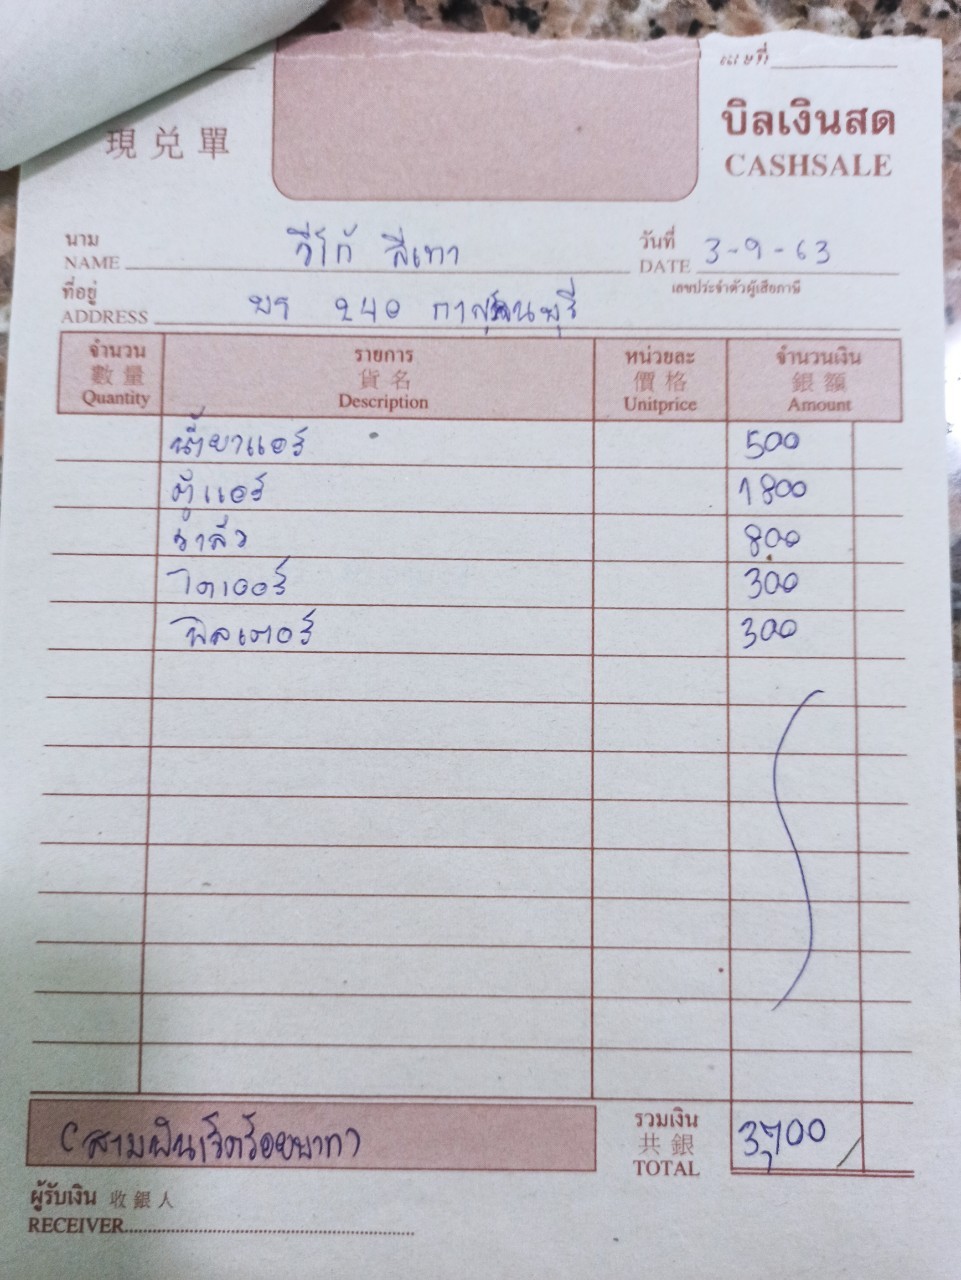 เลขที่
現兑單
บิลเงินสด
CASHSALE
นาม
NAME
วีโก้ สีเทา
วันที่
DATE
3-9-63
เลขประจำตัวผู้เสียภาษี
ที่อยู่
ADDRESS
240
จำนวน
數量
Quantity
รายการ
貨名
Description
หน่วยละ
價格
Unitprice
จำนวนเงิน
銀額
Amount
น้ำยาแอร์ 500
ตู้แอร์ 1800
วาล์ว 800
ไดเออร์ 300
ฟิลเตอร์ 300
(สามพันเจ็ดร้อยบาท
รวมเงิน
共銀
TOTAL
3,700
ผู้รับเงิน 收銀人
RECEIVER